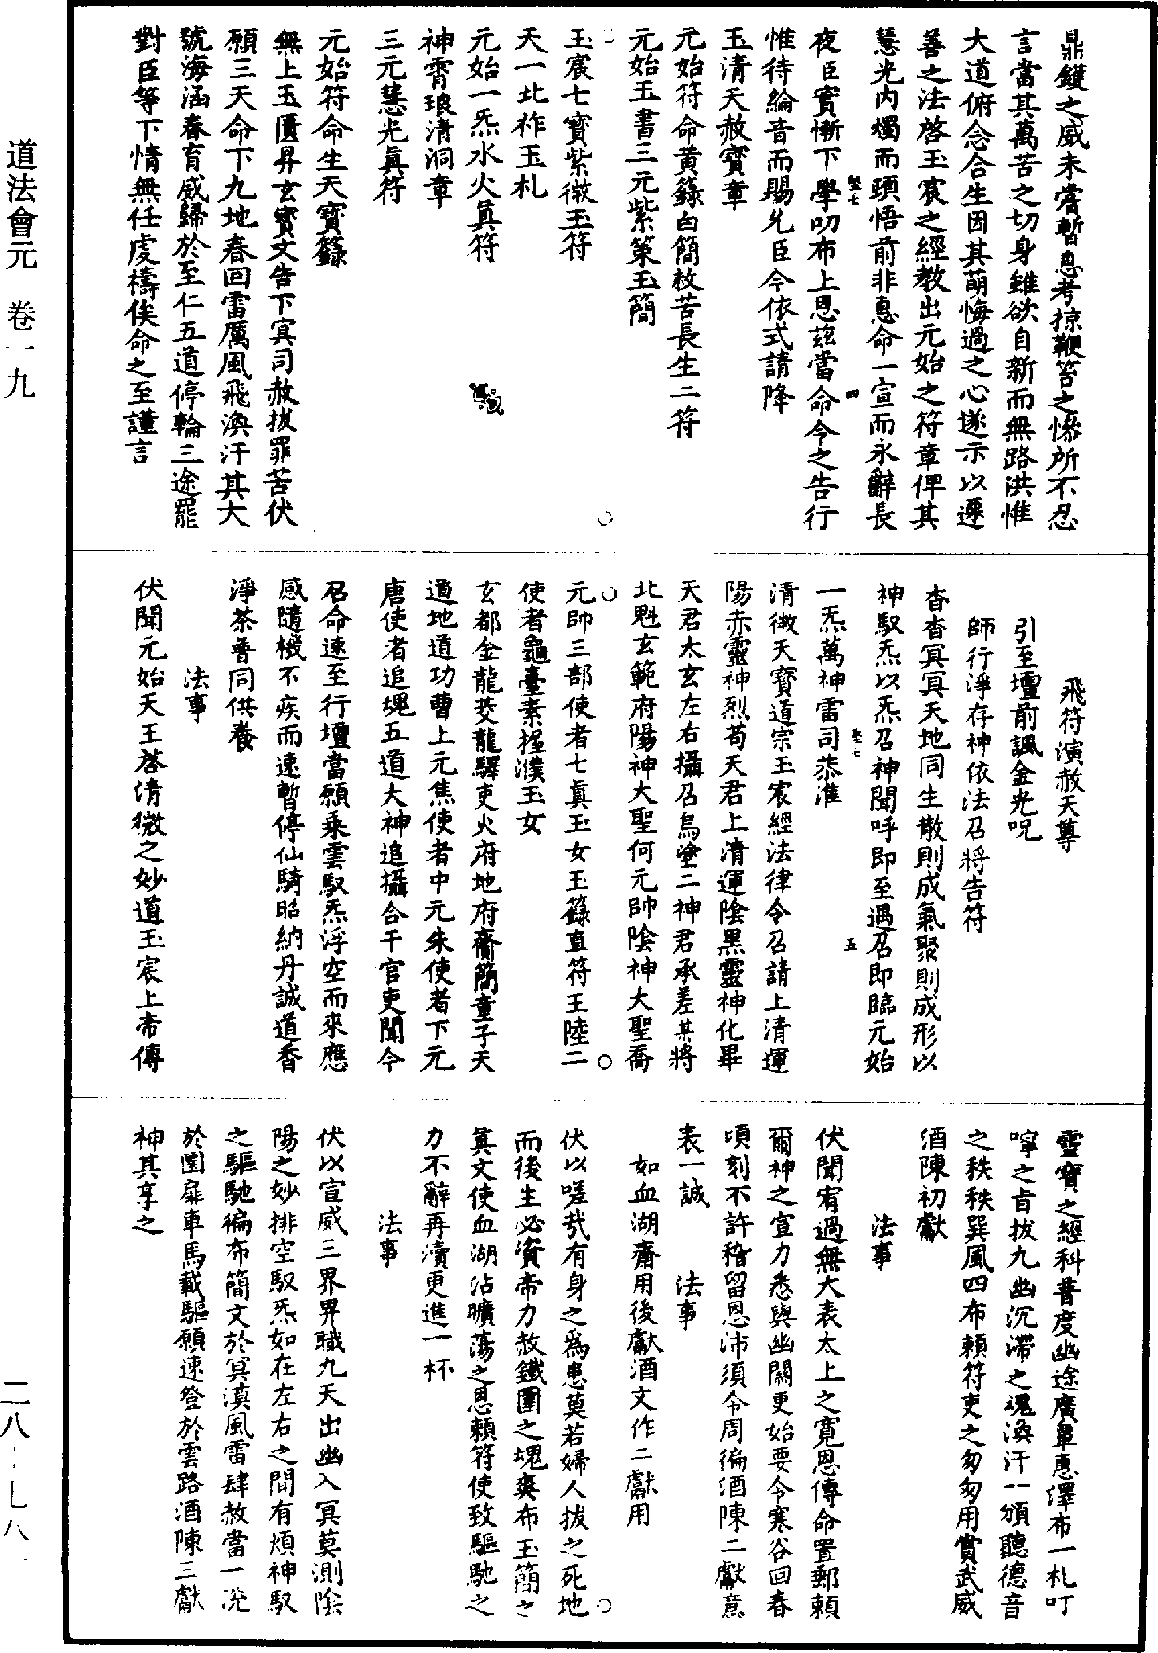 鼎鑊之威未嘗暫息考掠鞭笞之慘所不忍
言當其萬苦之切身雖欲自新而無路洪惟
大道俯念含生因其萌悔過之心遂示以遷
善之法啓玉宸之經教出元始之符章俾其
慧光內燭而頭悟前非惠命一宣而永辭長
夜臣實慚下學叨布上恩兹當命令之告行
惟待綸音而賜允臣今依式請降
玉清天赦寶章
元始符命黃籙白簡救苦長生二符
元始玉書三元紫策玉簡
玉宸七寶紫微玉符
天一北祚玉札
元始一炁水火真符
神霄琅清洞章
三元慧光真符
元始符命生天寶籙
無上玉匱昇玄寶文告下冥司赦拔罪苦伏
願三天命下九地春回雷厲風飛渙汗其大
號海涵春育咸歸於至仁五道停輪三途罷
對臣等下情無任虔禱俟命之至謹言
飛符演赦天尊
引至壇前諷金光呪
師行淨存神依法召將告符
杳杳冥冥天地同生散則成氣聚則成形以
神馭炁以炁召神聞呼即至遇召即臨元始
一炁萬神雷司恭准
清微天寶道宗玉宸經法律令召請上清運
陽赤靈神烈苟天君上清運陰黑靈神化畢
天君太玄左右攝召烏塗二神君承差其將
北魁玄範府陽神大聖何元帥陰神大聖喬
元帥三部使者七真玉女玉籙直符王陸二
使者龜臺素握濮玉女
玄都金龍茭龍驛吏火府地府齎簡童子天
道地道功曹上元焦使者中元朱使者下元
唐使者追魂五道大神追攝合干官吏聞今
召命速至行壇當願乘雲馭炁浮空而來應
感隨機不疾而速暫停仙騎昭納丹誠道香
淨茶普同供養
法事
伏聞元始天王啓清微之妙道玉宸上帝傳
靈寶之經科普度幽途廣覃惠澤布一札叮
嚀之旨拔九幽沉滯之魂渙汗一頒聽德音
之秩秩巽風四布賴符吏之匆匆用賞武威
酒陳初獻
法事
伏聞宥過無大表太上之寬恩傳命置郵賴
爾神之宣力悉與幽關更始要令寒谷回春
頃刻不許稽留恩沛須令周徧酒陳二獻意
表一誠　法事
如血湖齋用後獻酒文作二獻用
伏以嗟哉有身之爲患莫若婦人拔之死地
而後生必資帝力赦鐵圍之塊爽布玉簡之
真文使血湖沾曠蕩之恩賴符使致驅馳之
力不辭再瀆更進一杯
法事
伏以宣威三界界職九天出幽入冥莫測陰
陽之妙排空馭炁如在左右之間有煩神馭
之驅馳徧布簡文於冥漠風雷肆赦當一洗
於圜扉車馬載驅願速登於雲路酒陳三獻
神其享之
道法會元　卷一九